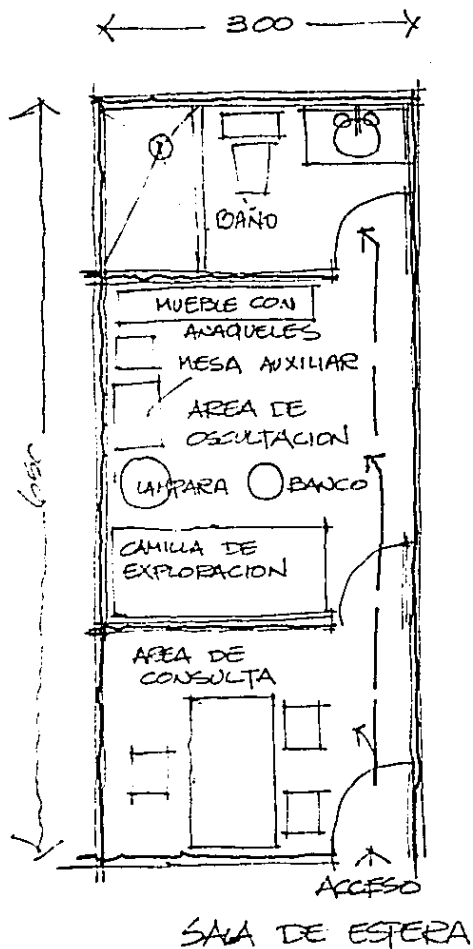 300
BAÑO
MUEBLE CON
ANAQUELES
MESA AUXILIAR
AREA DE
OSCULTACION
LAMPARA
BANCO
CAMILLA DE
EXPLORACION
AREA DE
CONSULTA
ACCESO
SALA DE ESPERA